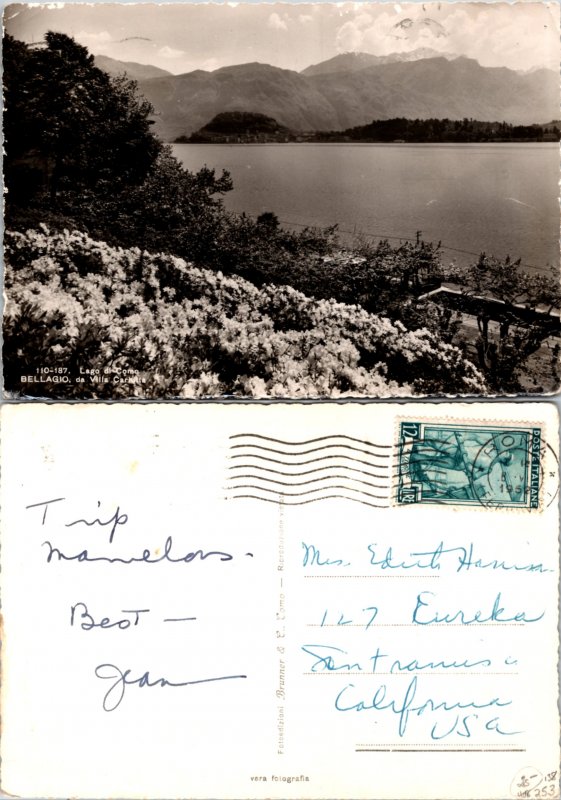 110-187. Lago di Como
BELLAGIO. da Villa Carlotta
12
POSTE ITALIANE
Trip
marvelous -
Best -
Jean
Fotoedizioni Brunner & C. Como - Riproduzione
Mrs. Edith Harrison
127 Eureka
San Francisco
California
USA
vera fotografia
253